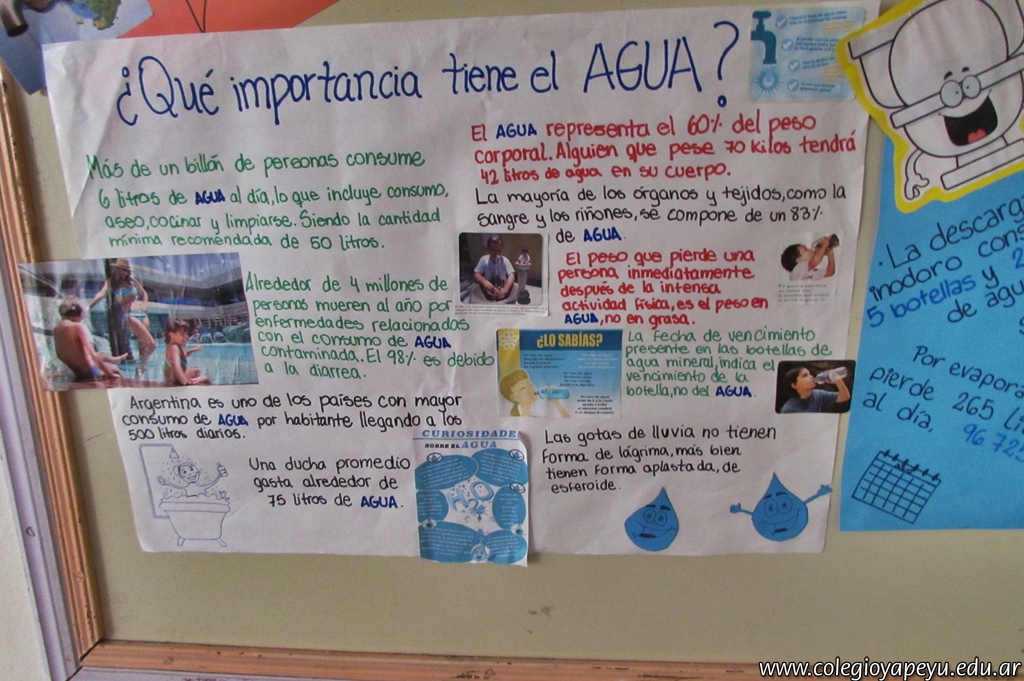 ¿Qué importancia tiene el AGUA?
Más de un billón de personas consume
6 litros de AGUA al día, lo que incluye consumo,
aseo, cocinar y limpiarse. Siendo la cantidad
mínima recomendada de 50 litros.
Alrededor de 4 millones de
personas mueren al año por
enfermedades relacionadas
con el consumo de AGUA
contaminada. El 98% es debido
a la diarrea.
Argentina es uno de los países con mayor
consumo de AGUA por habitante llegando a los
500 litros diarios.
Una ducha promedio
gasta alrededor de
75 litros de AGUA.
El AGUA representa el 60% del peso
corporal. Alguien que pese 70 kilos tendrá
42 litros de agua en su cuerpo.
La mayoría de los órganos y tejidos, como la
sangre y los riñones, se compone de un 83%
de AGUA.
El peso que pierde una
persona inmediatamente
después de la intensa
actividad física, es el peso en
AGUA, no en grasa.
¿LO SABÍAS?
La fecha de vencimiento
presente en las botellas de
agua mineral, indica el
vencimiento de la
botella, no del AGUA.
CURIOSIDADE
SOBRE EL AGUA
Las gotas de lluvia no tienen
forma de lágrima, más bien
tienen forma aplastada, de
esferoide.
. La descarg
inodoro cons
5 botellas y 2
de agu
Por evapora
pierde 265 li
al día,
96.725
www.colegioyapeyu.edu.ar